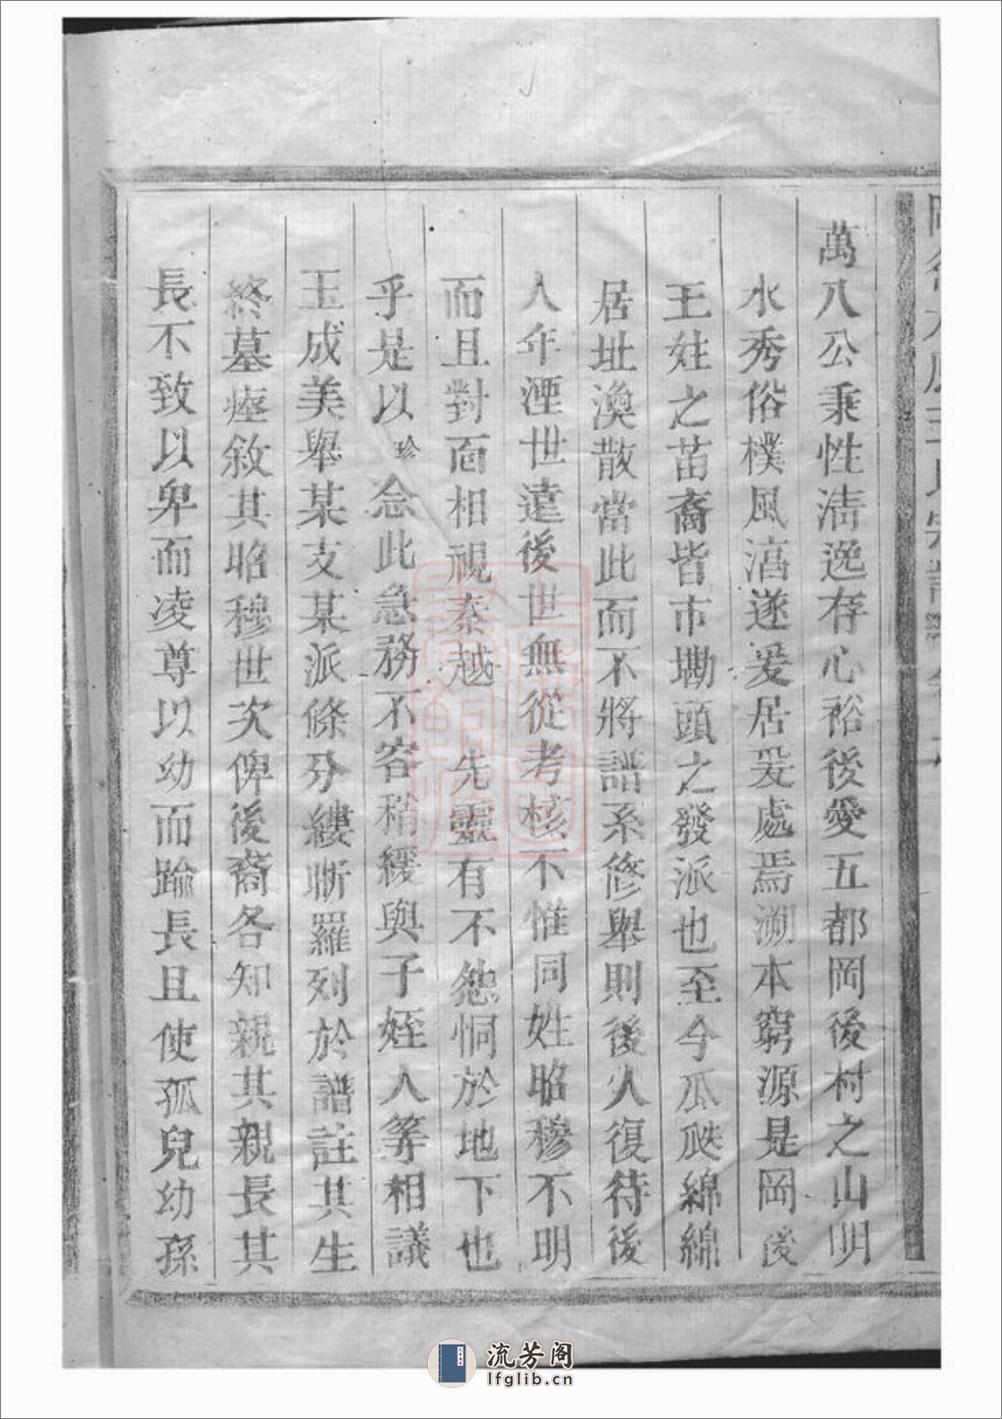 萬八公秉性清逸存心裕後愛五都岡後村之山明
水秀俗樸風淳遂爰居爰處焉溯本窮源是岡後
王姓之苗裔皆市墈頭之發派也至今瓜瓞綿綿
居址渙散當此而不將譜系修舉則後人復待後
人年湮世遠後世無從考核不惟同姓昭穆不明
而且對面相視秦越 先靈有不怨恫於地下也
乎是以珍念此急務不容稍緩與子姪人等相議
玉成美舉某支某派條分縷晰羅列於譜註其生
終墓塟敘其昭穆世次俾後裔各知親其親長其
長不致以卑而凌尊以幼而踰長且使孤兒幼孫
流芳阁
lfglib.cn